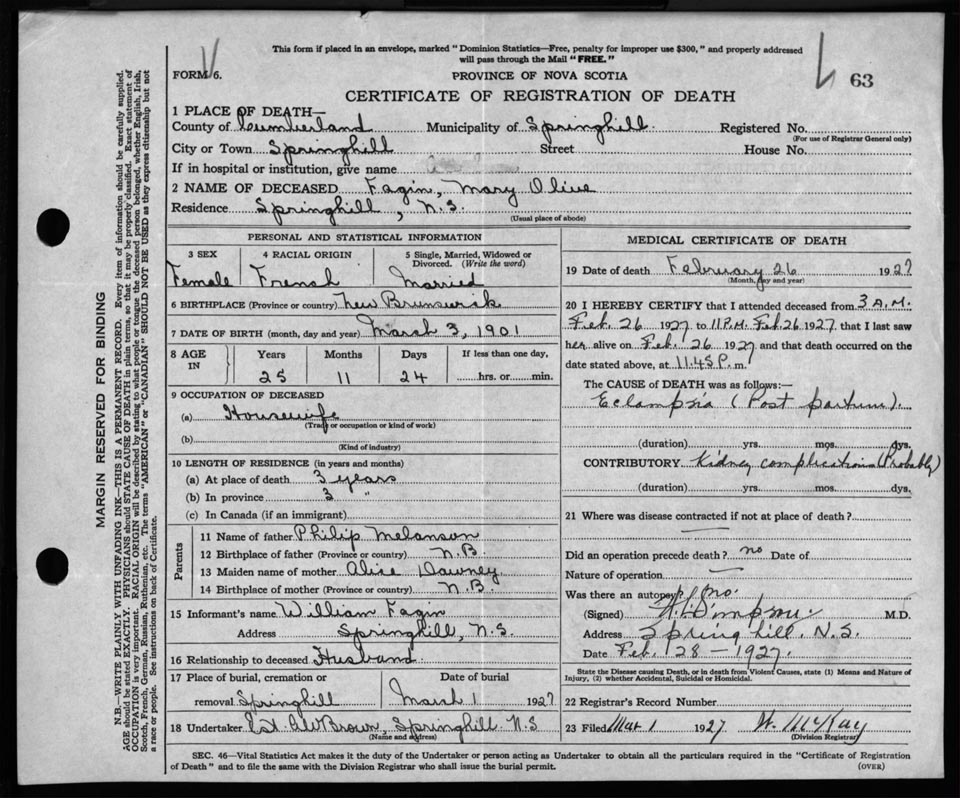 This form if placed in an envelope, marked "Dominion Statistics—Free, penalty for improper use $300," and properly addressed
will pass through the Mail "FREE."
FORM 6.
PROVINCE OF NOVA SCOTIA
63
CERTIFICATE OF REGISTRATION OF DEATH
1 PLACE OF DEATH—
County of Cumberland Municipality of Springhill. Registered No.
(For use of Registrar General only)
City or Town Springhill Street House No.
If in hospital or institution, give name
2 NAME OF DECEASED Fagin, Mary Olive
Residence Springhill, N.S.
(Usual place of abode)
PERSONAL AND STATISTICAL INFORMATION
3 SEX 4 RACIAL ORIGIN 5 Single, Married, Widowed or
Divorced. (Write the word)
Female French Married
6 BIRTHPLACE (Province or country) New Brunswick
7 DATE OF BIRTH (month, day and year) March 3, 1901
8 AGE IN Years Months Days If less than one day,
25 11 24 hrs. or min.
9 OCCUPATION OF DECEASED
(a) Housewife
(Trade or occupation or kind of work)
(b)
(Kind of industry)
10 LENGTH OF RESIDENCE (in years and months)
(a) At place of death 3 years
(b) In province 3 "
(c) In Canada (if an immigrant)
Parents
11 Name of father Philip Melanson
12 Birthplace of father (Province or country) N.B.
13 Maiden name of mother Alice Downey
14 Birthplace of mother (Province or country) N.B.
15 Informant's name William Fagin
Address Springhill, N.S.
16 Relationship to deceased Husband
17 Place of burial, cremation or Date of burial
removal Springhill March 1 1927
18 Undertaker Est. Brown, Springhill N.S
(Name and address)
MEDICAL CERTIFICATE OF DEATH
19 Date of death February 26 1927
(Month, day and year)
20 I HEREBY CERTIFY that I attended deceased from 3 A.M.
Feb. 26 1927 to 11 P.M. Feb. 26 1927, that I last saw
her alive on Feb. 26 1927 and that death occurred on the
date stated above, at 11.45 P. m.
The CAUSE of DEATH was as follows:—
Eclampsia (Post partum).
(duration) yrs. mos. dys.
CONTRIBUTORY Kidney complications (Probably)
(duration) yrs. mos. dys.
21 Where was disease contracted if not at place of death?
Did an operation precede death? no Date of
Nature of operation
Was there an autopsy? no.
(Signed) M.D.
Address Springhill. N.S.
Date Feb. 28 — 1927.
State the Disease causing Death, or in death from Violent Causes, state (1) Means and Nature of
Injury, (2) whether Accidental, Suicidal or Homicidal.
22 Registrar's Record Number
23 Filed Mar 1 1927 W. McKay
(Division Registrar)
SEC. 46—Vital Statistics Act makes it the duty of the Undertaker or person acting as Undertaker to obtain all the particulars required in the "Certificate of Registration
of Death" and to file the same with the Division Registrar who shall issue the burial permit. (OVER)
MARGIN RESERVED FOR BINDING
N.B.—WRITE PLAINLY WITH UNFADING INK—THIS IS A PERMANENT RECORD. Every item of information should be carefully supplied.
AGE should be stated EXACTLY. PHYSICIANS should STATE CAUSE OF DEATH in plain terms, so that it may be properly classified. Exact statement of
OCCUPATION is very important. RACIAL ORIGIN will be described by stating to what people or tongue the deceased person belonged, whether English, Irish,
Scotch, French, German, Russian, Ruthenian, etc. The terms "AMERICAN" or "CANADIAN" SHOULD NOT BE USED as they express citizenship but not
a race or people. See instructions on back of Certificate.